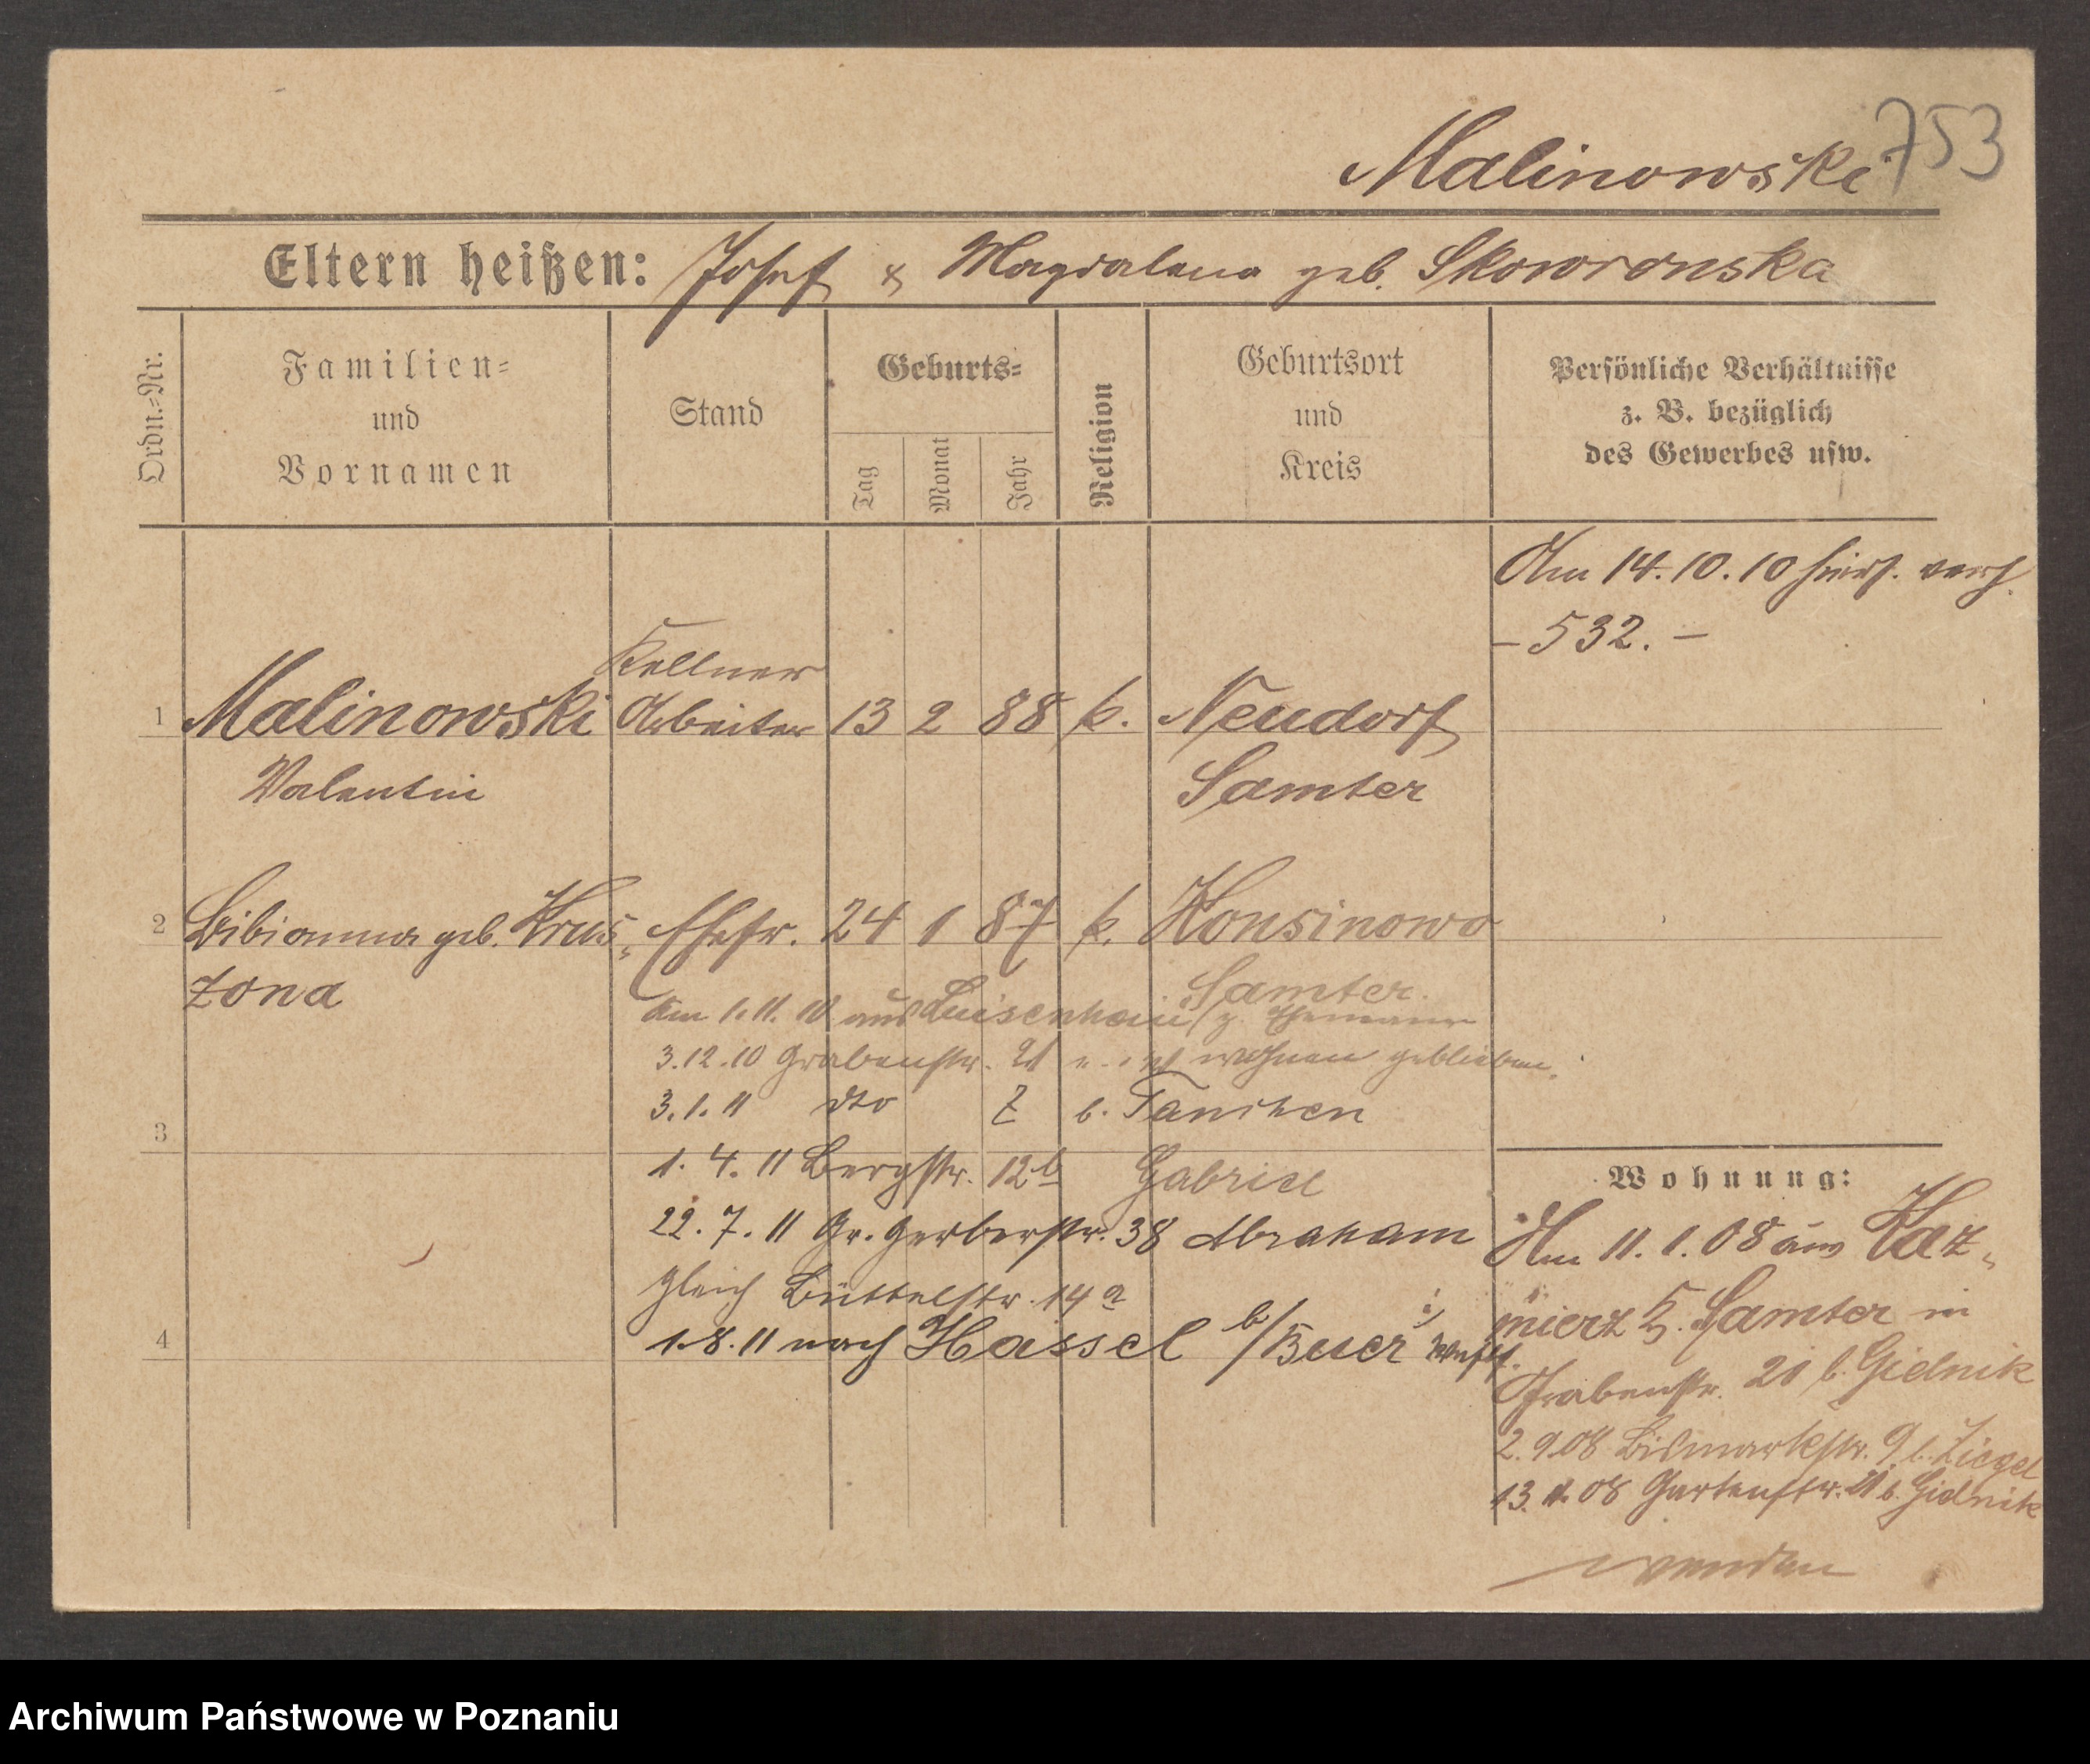 Malinowski 753
Eltern heißen: Josef & Magdalena geb. Skowronska
Ordn.=Nr.
Familien=
und
Vornamen
Stand
Geburts=
Tag
Monat
Jahr
Religion
Geburtsort
und
Kreis
Persönliche Verhältnisse
z. B. bezüglich
des Gewerbes usw.
Am 14.10.10 hiers. verh.
– 532. –
Kellner
1 Malinowski Arbeiter 13 2 88 k. Neudorf
Valentin Samter
2 Bibianna geb. Krus- Ehefr. 24 1 87 k. Konsinowo
zona Samter.
Am 1.11.10 aus Luisenhain z. Ehemann
3.12.10 Grabenstr. 21 wohnen geblieben.
3.1.11 dto 7 b.
3
1.4.11 Bergstr. 12b Gabriel
22.7.11 Gr. Gerberstr. 38 Abraham
gleich Büttelstr. 14a
4
1.8.11 nach Hassel b/Buer i/ Westf.
Wohnung:
Am 11.1.08 aus Kaz-
mierz K. Samter in
Grabenstr. 21 b. Gidnik
2.9.08 Bismarkstr. 9 b. Ziegel
13.11.08 Gartenstr. 21 b. Gidnik
wenden
Archiwum Państwowe w Poznaniu